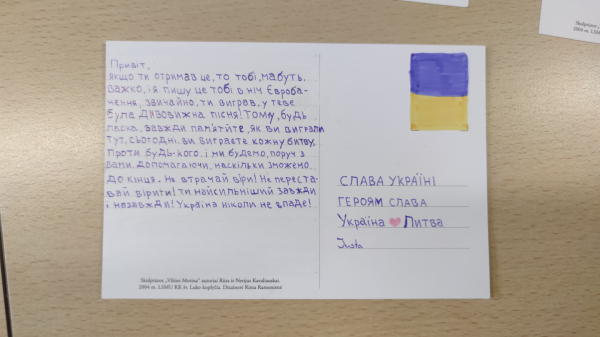 Привіт,
якщо ти отримав це, то тобі, мабуть,
важко, і я пишу це тобі в ніч Євроба-
чення, звичайно, ти виграв, у тебе
була дивовижна пісня! Тому, будь
ласка, завжди пам'ятйте, як ви виграли
тут, сьогодні. ви виграєте кожну битву.
Проти будь-кого. і ми будемо, поруч з
вами, допомагаючи, наскільки зможемо
до кінця. Не втрачай віри! Не переста-
вай вірити! ти найсильніший завжди
і назавжди! Україна ніколи не впаде!
СЛАВА УКРАЇНІ
ГЕРОЯМ СЛАВА
Україна Литва
Justa
Skulptūros „Vilties Motina" autoriai Rūta ir Nerijus Kavaliauskai.
2004 m. LSMU KK šv. Luko koplyčia. Dizainerė Rima Ramonienė